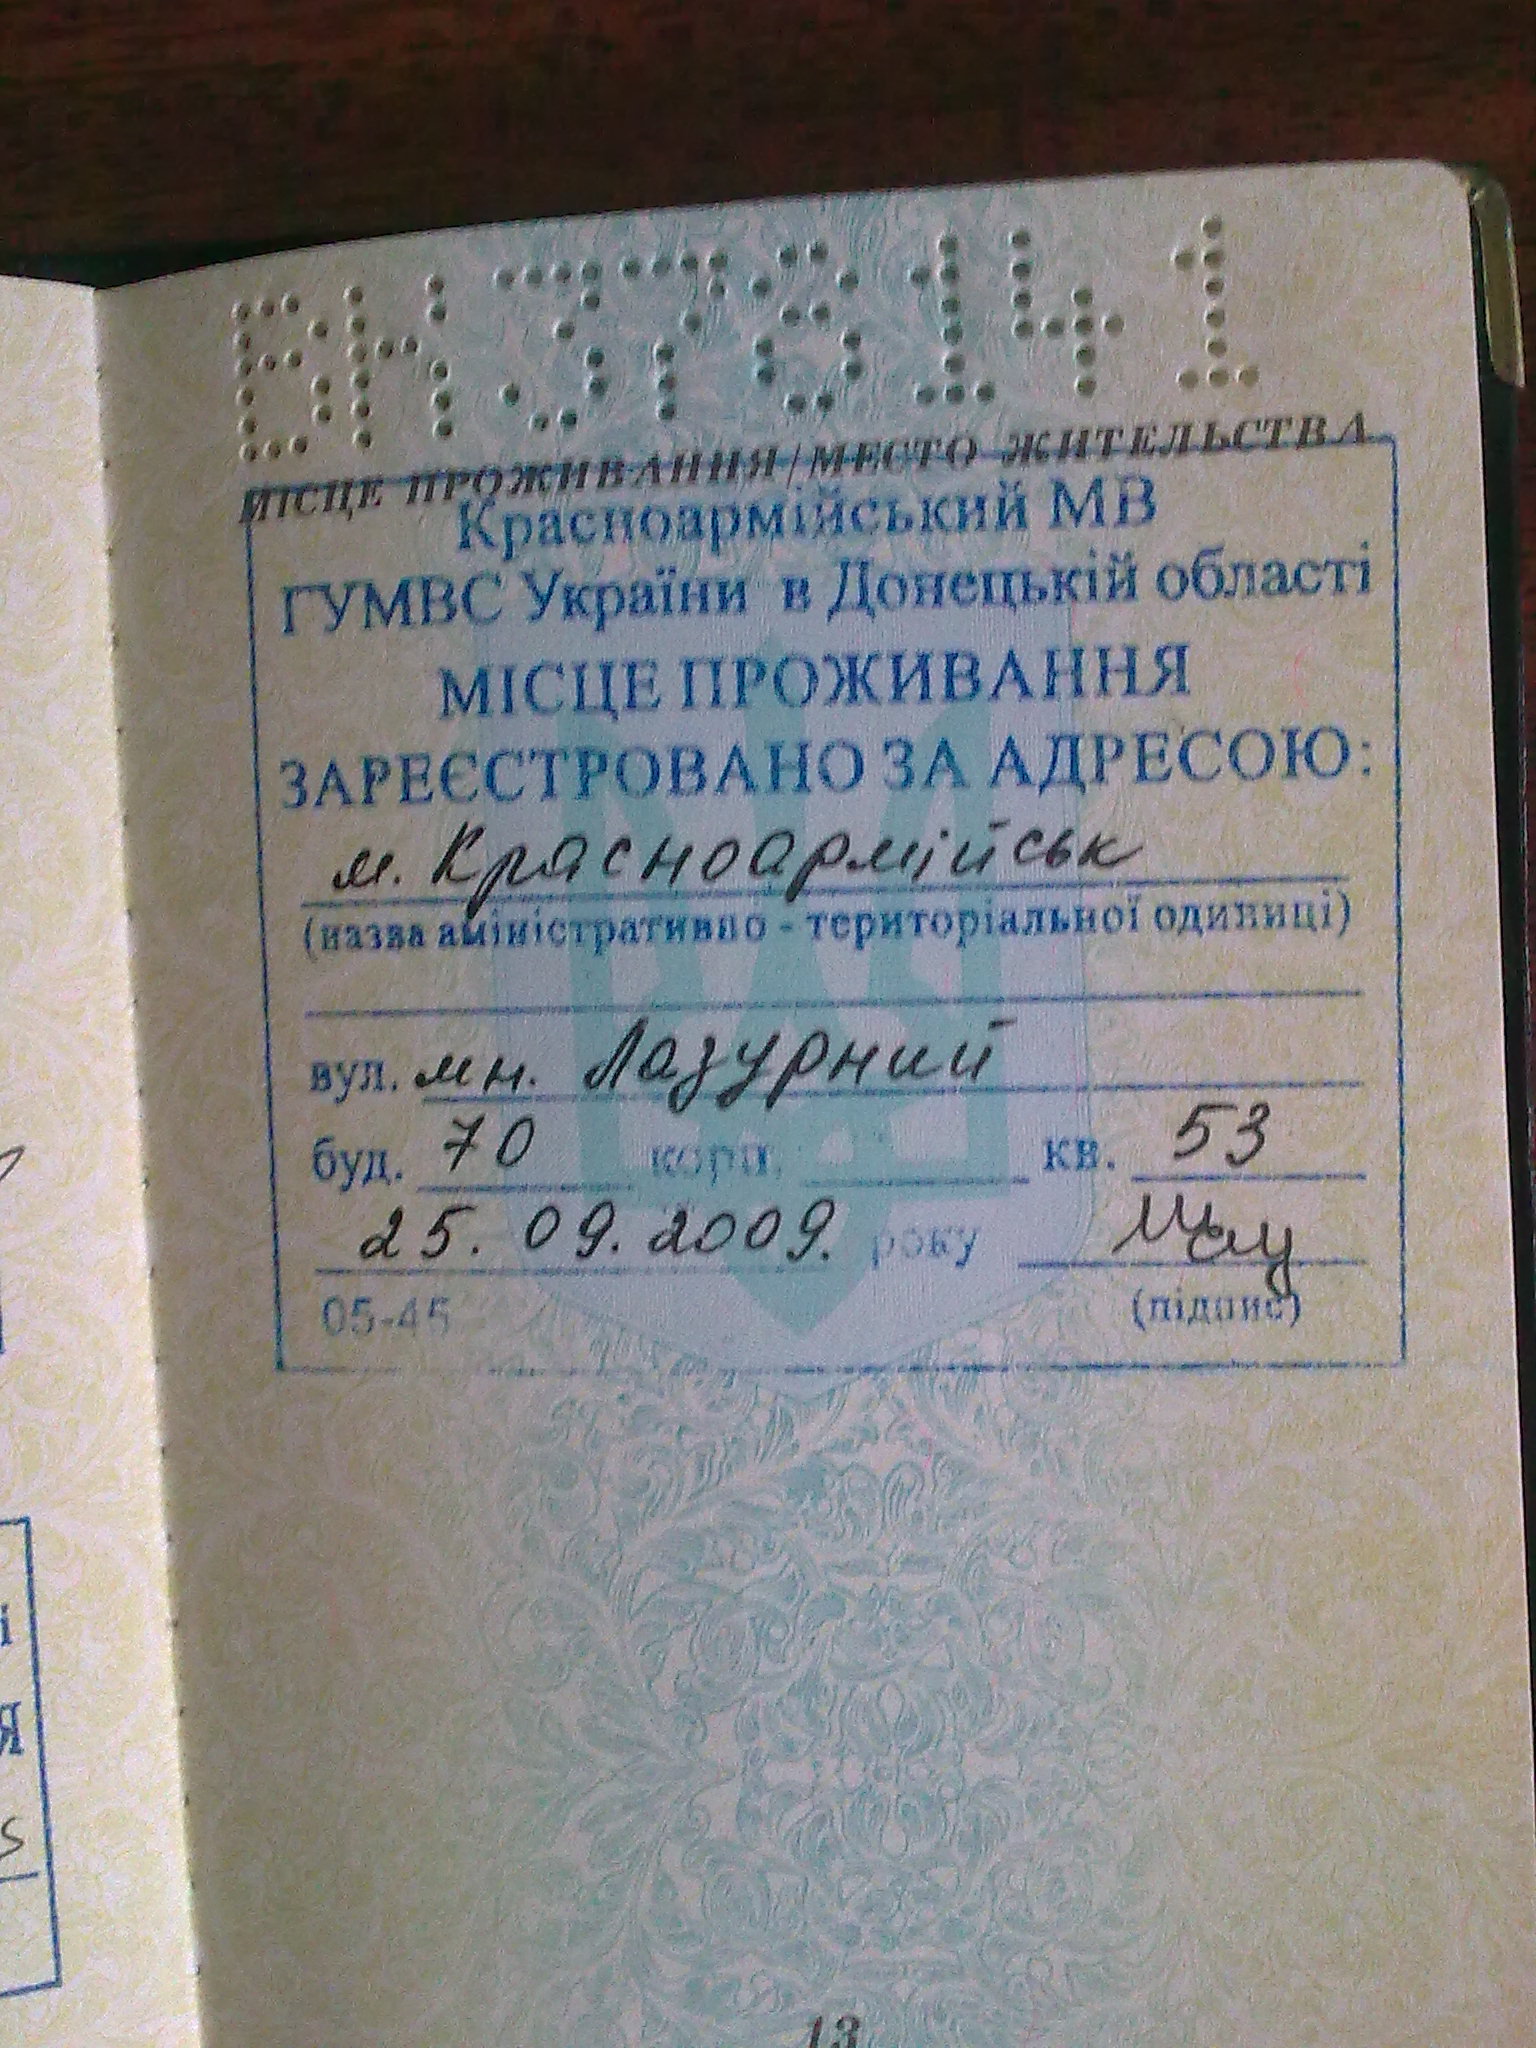 ВК378141
МІСЦЕ ПРОЖИВАННЯ/МЕСТО ЖИТЕЛЬСТВА
Красноармійський МВ
ГУМВС України в Донецькій області
МІСЦЕ ПРОЖИВАННЯ
ЗАРЕЄСТРОВАНО ЗА АДРЕСОЮ:
м. Красноармійськ
(назва аміністративно - територіальної одиниці)
вул. мн. Лазурний
буд. 70 корп. кв. 53
25. 09. 2009. року
05-45 (підпис)
і
Я
13